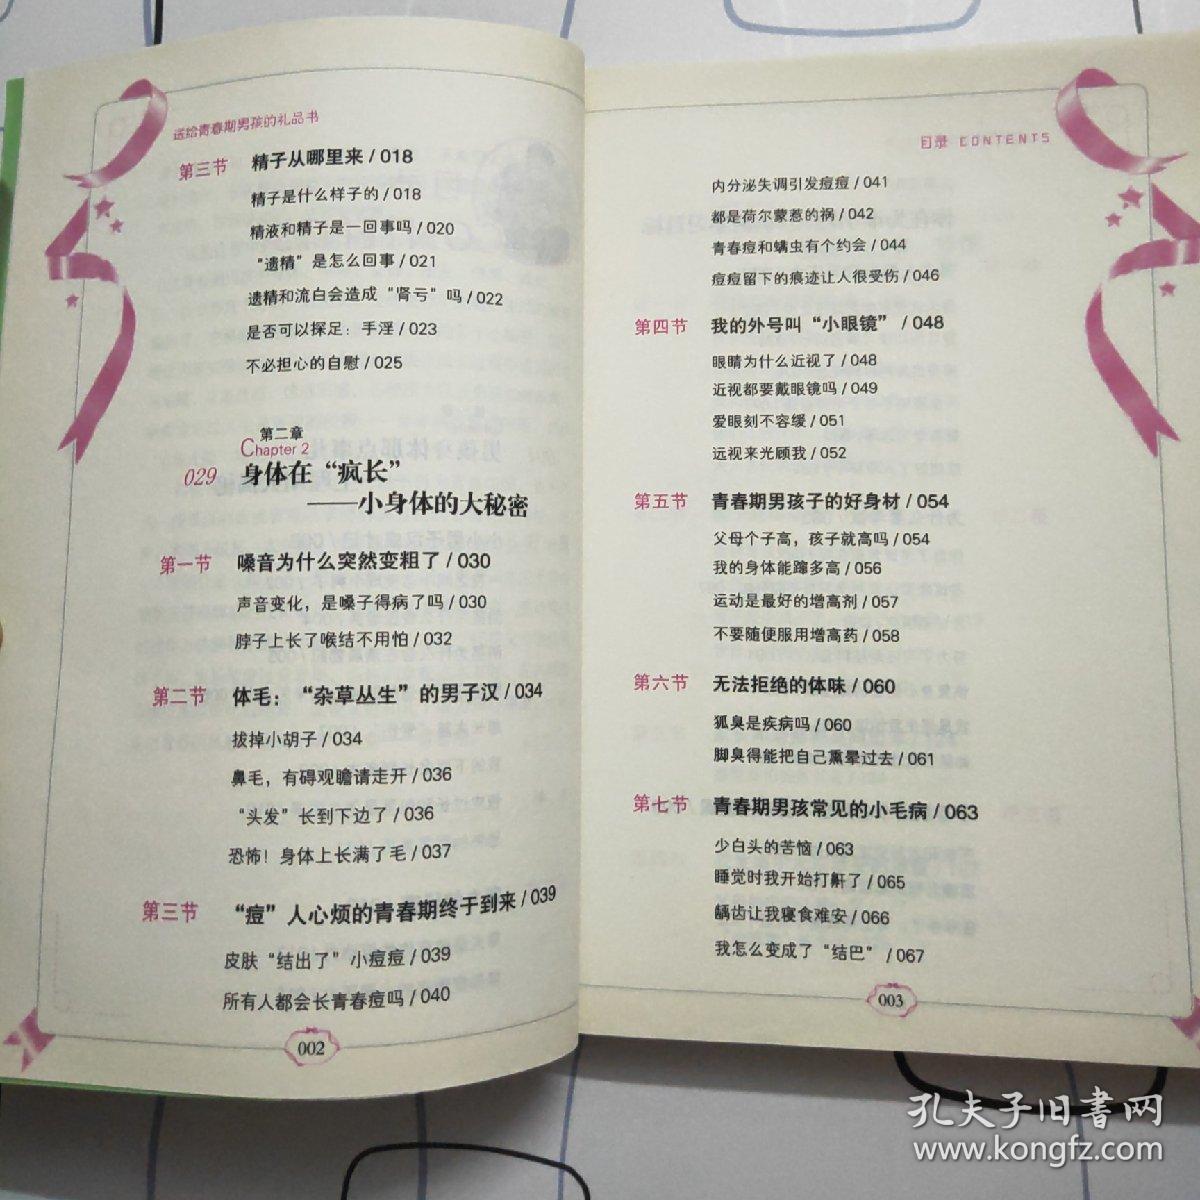 送给青春期男孩的礼品书
第三节 精子从哪里来 / 018
精子是什么样子的 / 018
精液和精子是一回事吗 / 020
“遗精”是怎么回事 / 021
遗精和流白会造成“肾亏”吗 / 022
是否可以探足：手淫 / 023
不必担心的自慰 / 025
第二章
Chapter 2
029 身体在“疯长”
——小身体的大秘密
第一节 嗓音为什么突然变粗了 / 030
声音变化，是嗓子得病了吗 / 030
脖子上长了喉结不用怕 / 032
第二节 体毛：“杂草丛生”的男子汉 / 034
拔掉小胡子 / 034
鼻毛，有碍观瞻请走开 / 036
“头发”长到下边了 / 036
恐怖！身体上长满了毛 / 037
第三节 “痘”人心烦的青春期终于到来 / 039
皮肤“结出了”小痘痘 / 039
所有人都会长青春痘吗 / 040
002
目录 CONTENTS
内分泌失调引发痘痘 / 041
都是荷尔蒙惹的祸 / 042
青春痘和螨虫有个约会 / 044
痘痘留下的痕迹让人很受伤 / 046
第四节 我的外号叫“小眼镜” / 048
眼睛为什么近视了 / 048
近视都要戴眼镜吗 / 049
爱眼刻不容缓 / 051
远视来光顾我 / 052
第五节 青春期男孩子的好身材 / 054
父母个子高，孩子就高吗 / 054
我的身体能蹿多高 / 056
运动是最好的增高剂 / 057
不要随便服用增高药 / 058
第六节 无法拒绝的体味 / 060
狐臭是疾病吗 / 060
脚臭得能把自己熏晕过去 / 061
第七节 青春期男孩常见的小毛病 / 063
少白头的苦恼 / 063
睡觉时我开始打鼾了 / 065
龋齿让我寝食难安 / 066
我怎么变成了“结巴” / 067
003
孔夫子旧书网
www.kongfz.com